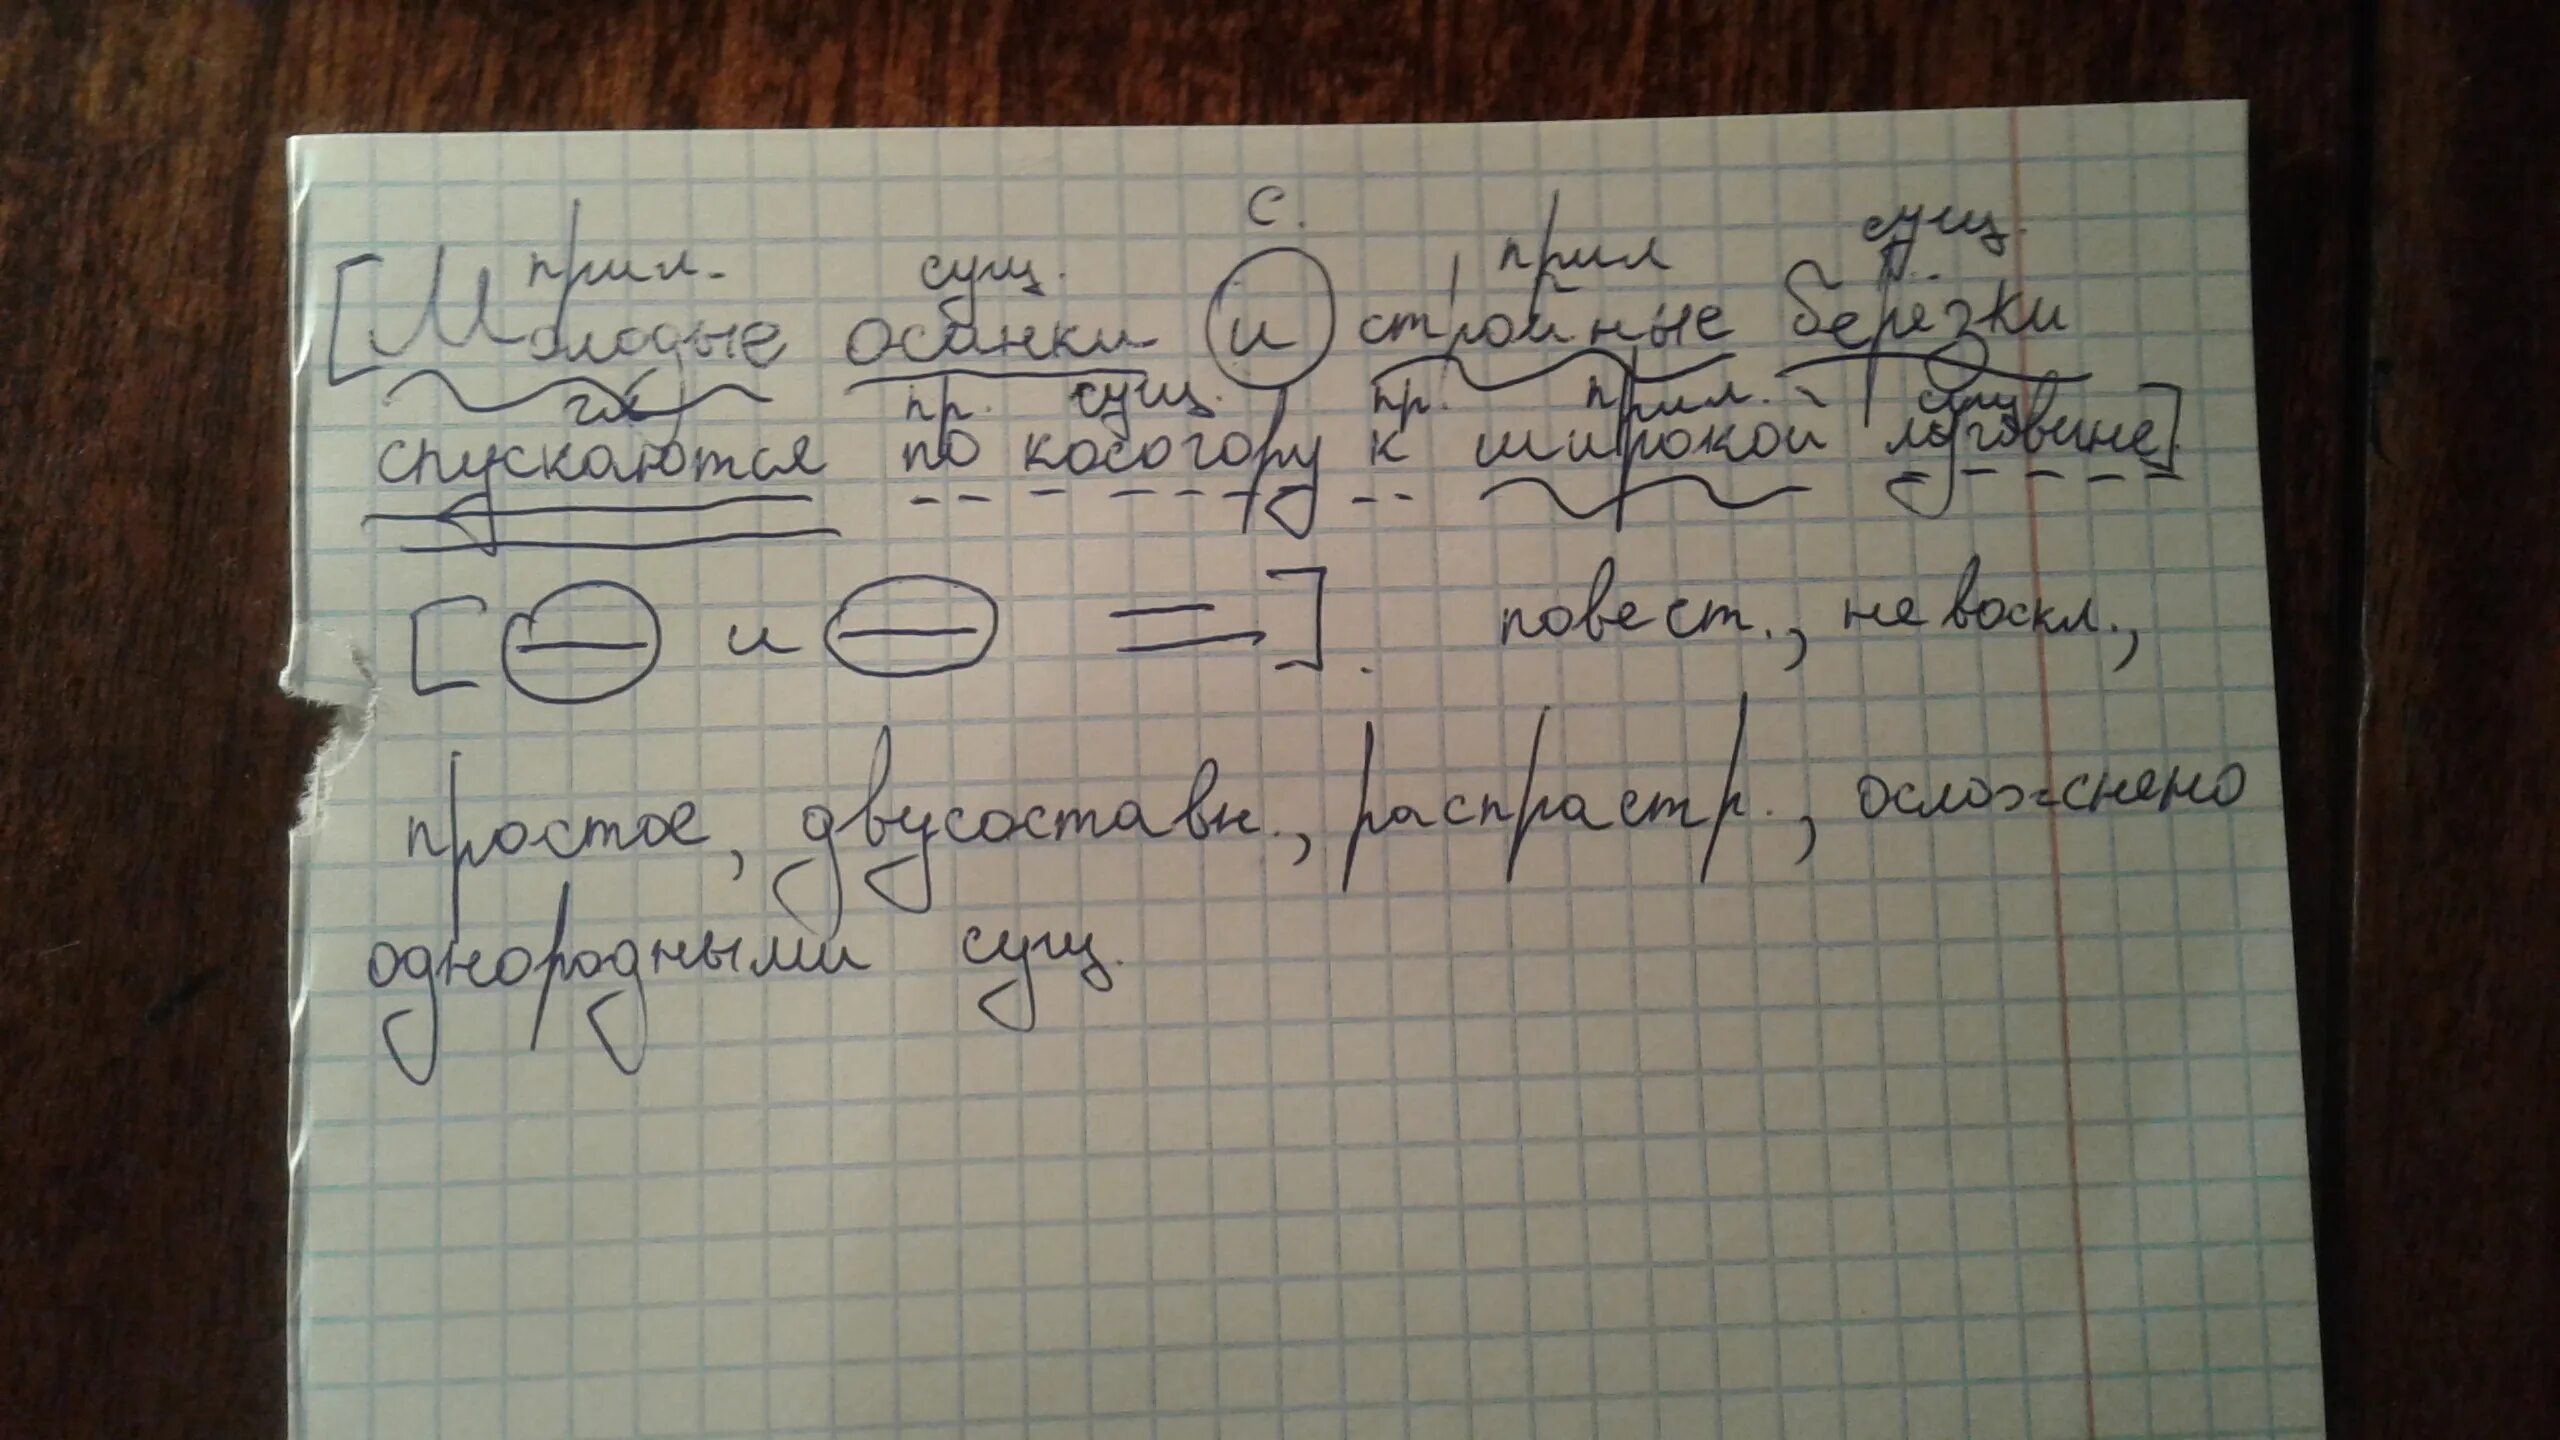 с.
прил. сущ. прил сущ.
[Молодые осинки и стройные берёзки
гл пр. сущ. пр. прил. сущ
спускаются по косогору к широкой луговине].
[ и ]. повест., невоскл.,
простое, двусоставн., распрастр., осложнено
однородными сущ.